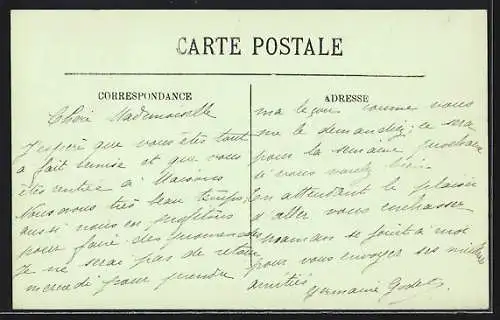 CARTE POSTALE
CORRESPONDANCE
Chère Mademoiselle
J'espère que vous êtes tout
a fait remise et que vous
êtes rentrée à Maisons
Nous avons très beau temps,
aussi nous en profitons
pour faire des promenades
Je ne serai pas de retour
mercredi pour prendre
ADRESSE
ma leçon comme vous
me le demandiez; ce sera
pour la semaine prochaine
si vous voulez bien.
En attendant le plaisir
d'aller vous embrasser
maman se joint à moi
pour vous envoyer ses meilleures
amitiés
Germaine